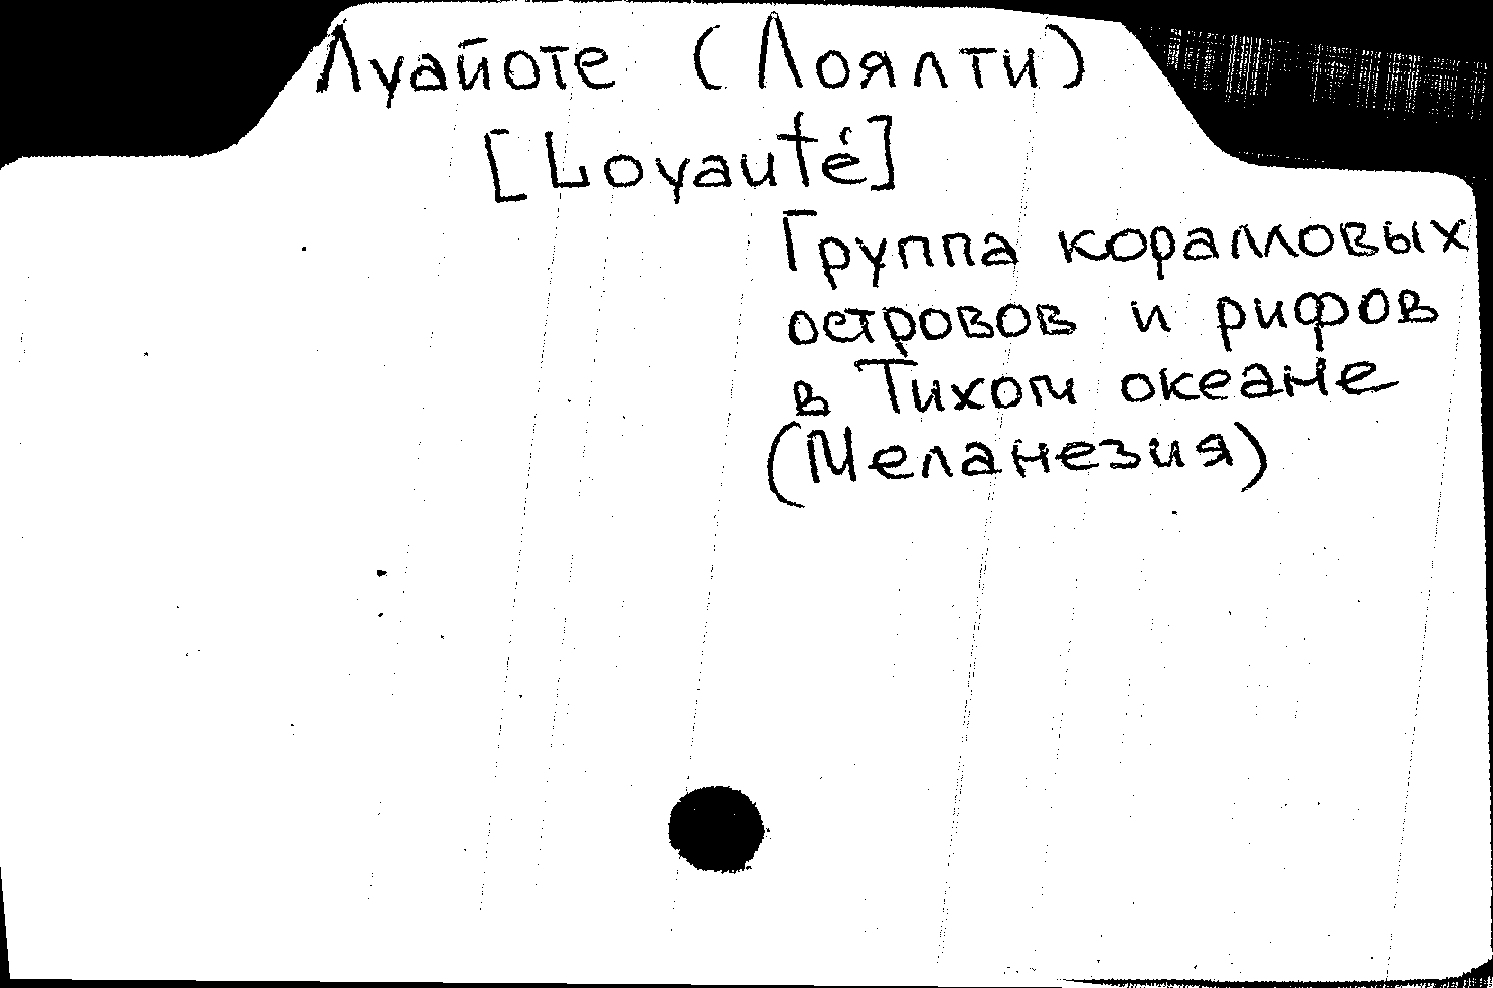 Луайоте (Лоялти)
[Loyauté]
Группа коралловых
островов и рифов
в Тихом океане
(Меланезия)